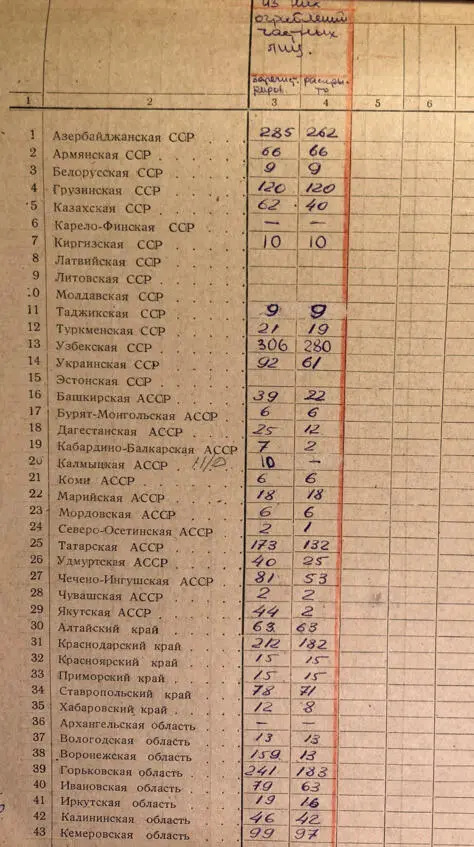 из них
ограблений
частных
лиц.
зарегист- раскры-
риров. то
1 2 3 4 5 6
1 Азербайджанская ССР 285 262
2 Армянская ССР 66 66
3 Белорусская ССР 9 9
4 Грузинская ССР 120 120
5 Казахская ССР 62 40
6 Карело-Финская ССР — —
7 Киргизская ССР 10 10
8 Латвийская ССР
9 Литовская ССР
10 Молдавская ССР
11 Таджикская ССР 9 9
12 Туркменская ССР 21 19
13 Узбекская ССР 306 280
14 Украинская ССР 92 61
15 Эстонская ССР
16 Башкирская АССР 39 22
17 Бурят-Монгольская АССР 6 6
18 Дагестанская АССР 25 12
19 Кабардино-Балкарская АССР 7 2
20 Калмыцкая АССР н/д 10 —
21 Коми АССР 6 6
22 Марийская АССР 18 18
23 Мордовская АССР 6 6
24 Северо-Осетинская АССР 2 1
25 Татарская АССР 173 132
26 Удмуртская АССР 40 25
27 Чечено-Ингушская АССР 81 53
28 Чувашская АССР 2 2
29 Якутская АССР 44 2
30 Алтайский край 63 63
31 Краснодарский край 212 182
32 Красноярский край 15 15
33 Приморский край 15 15
34 Ставропольский край 78 71
35 Хабаровский край 12 8
36 Архангельская область — —
37 Вологодская область 13 13
38 Воронежская область 159 13
39 Горьковская область 241 183
40 Ивановская область 79 63
41 Иркутская область 19 16
42 Калининская область 46 42
43 Кемеровская область 99 97